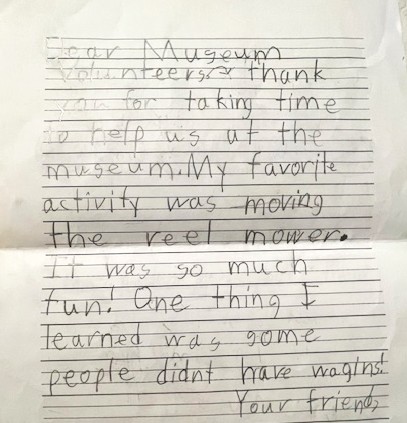 Dear Museum
Volunteers, thank
you for taking time
to help us at the
museum. My favorite
activity was moving
the reel mower.
It was so much
fun! One thing I
learned was some
people didnt have wagins!
Your friend,